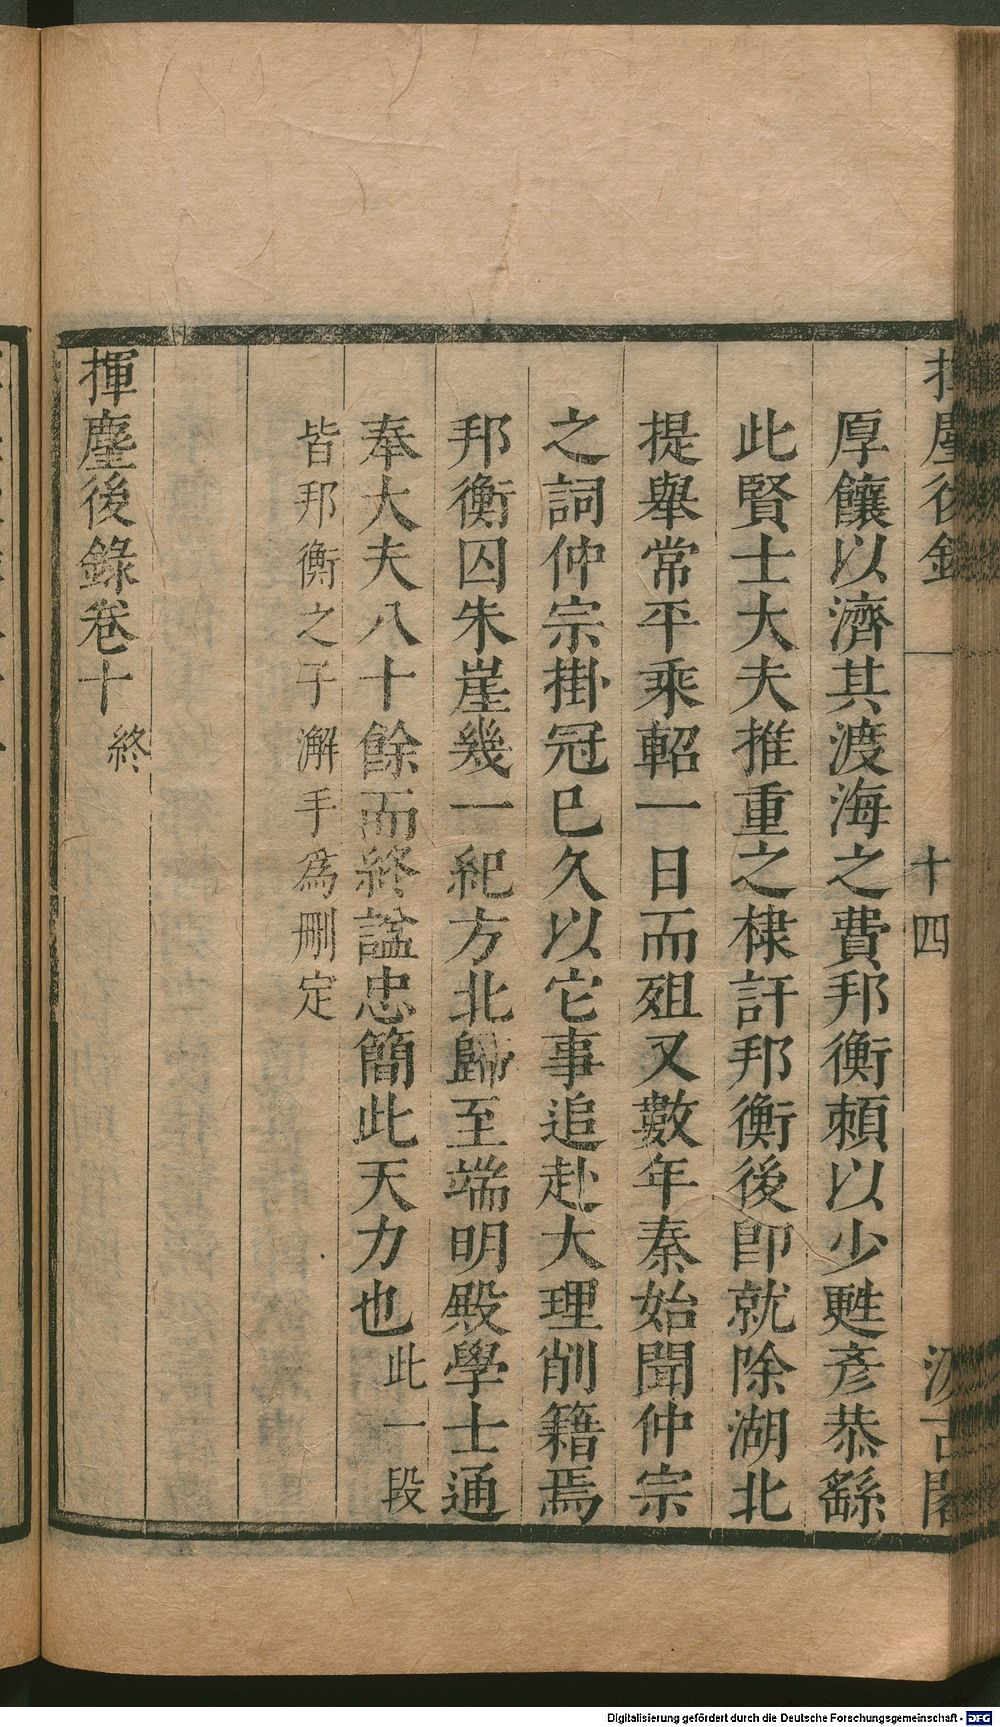 揮麈後錄 十四 汲古閣
厚饟以濟其渡海之費邦衡賴以少甦彥恭繇
此賢士大夫推重之棣訐邦衡後卽就除湖北
提舉常平乘軺一日而殂又數年秦始聞仲宗
之詞仲宗掛冠已久以它事追赴大理削籍焉
邦衡囚朱崖幾一紀方北歸至端明殿學士通
奉大夫八十餘而終諡忠簡此天力也此一段
皆邦衡之子澥手爲刪定
揮麈後錄卷十終
Digitalisierung gefördert durch die Deutsche Forschungsgemeinschaft - DFG